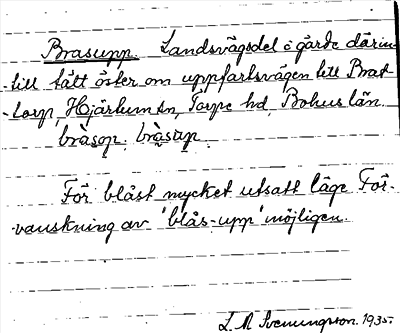 Brasupp. Landsvägsdel i gärde därin-
till tätt öster om uppfartsvägen till Brat-
torp, Hjärtum sn, Torpe hd, Bohus län.
bràsop, bràsup.
För blåst mycket utsatt läge För-
vanskning av 'blås-upp' möjligen.
L. M Svenungsson. 1935.